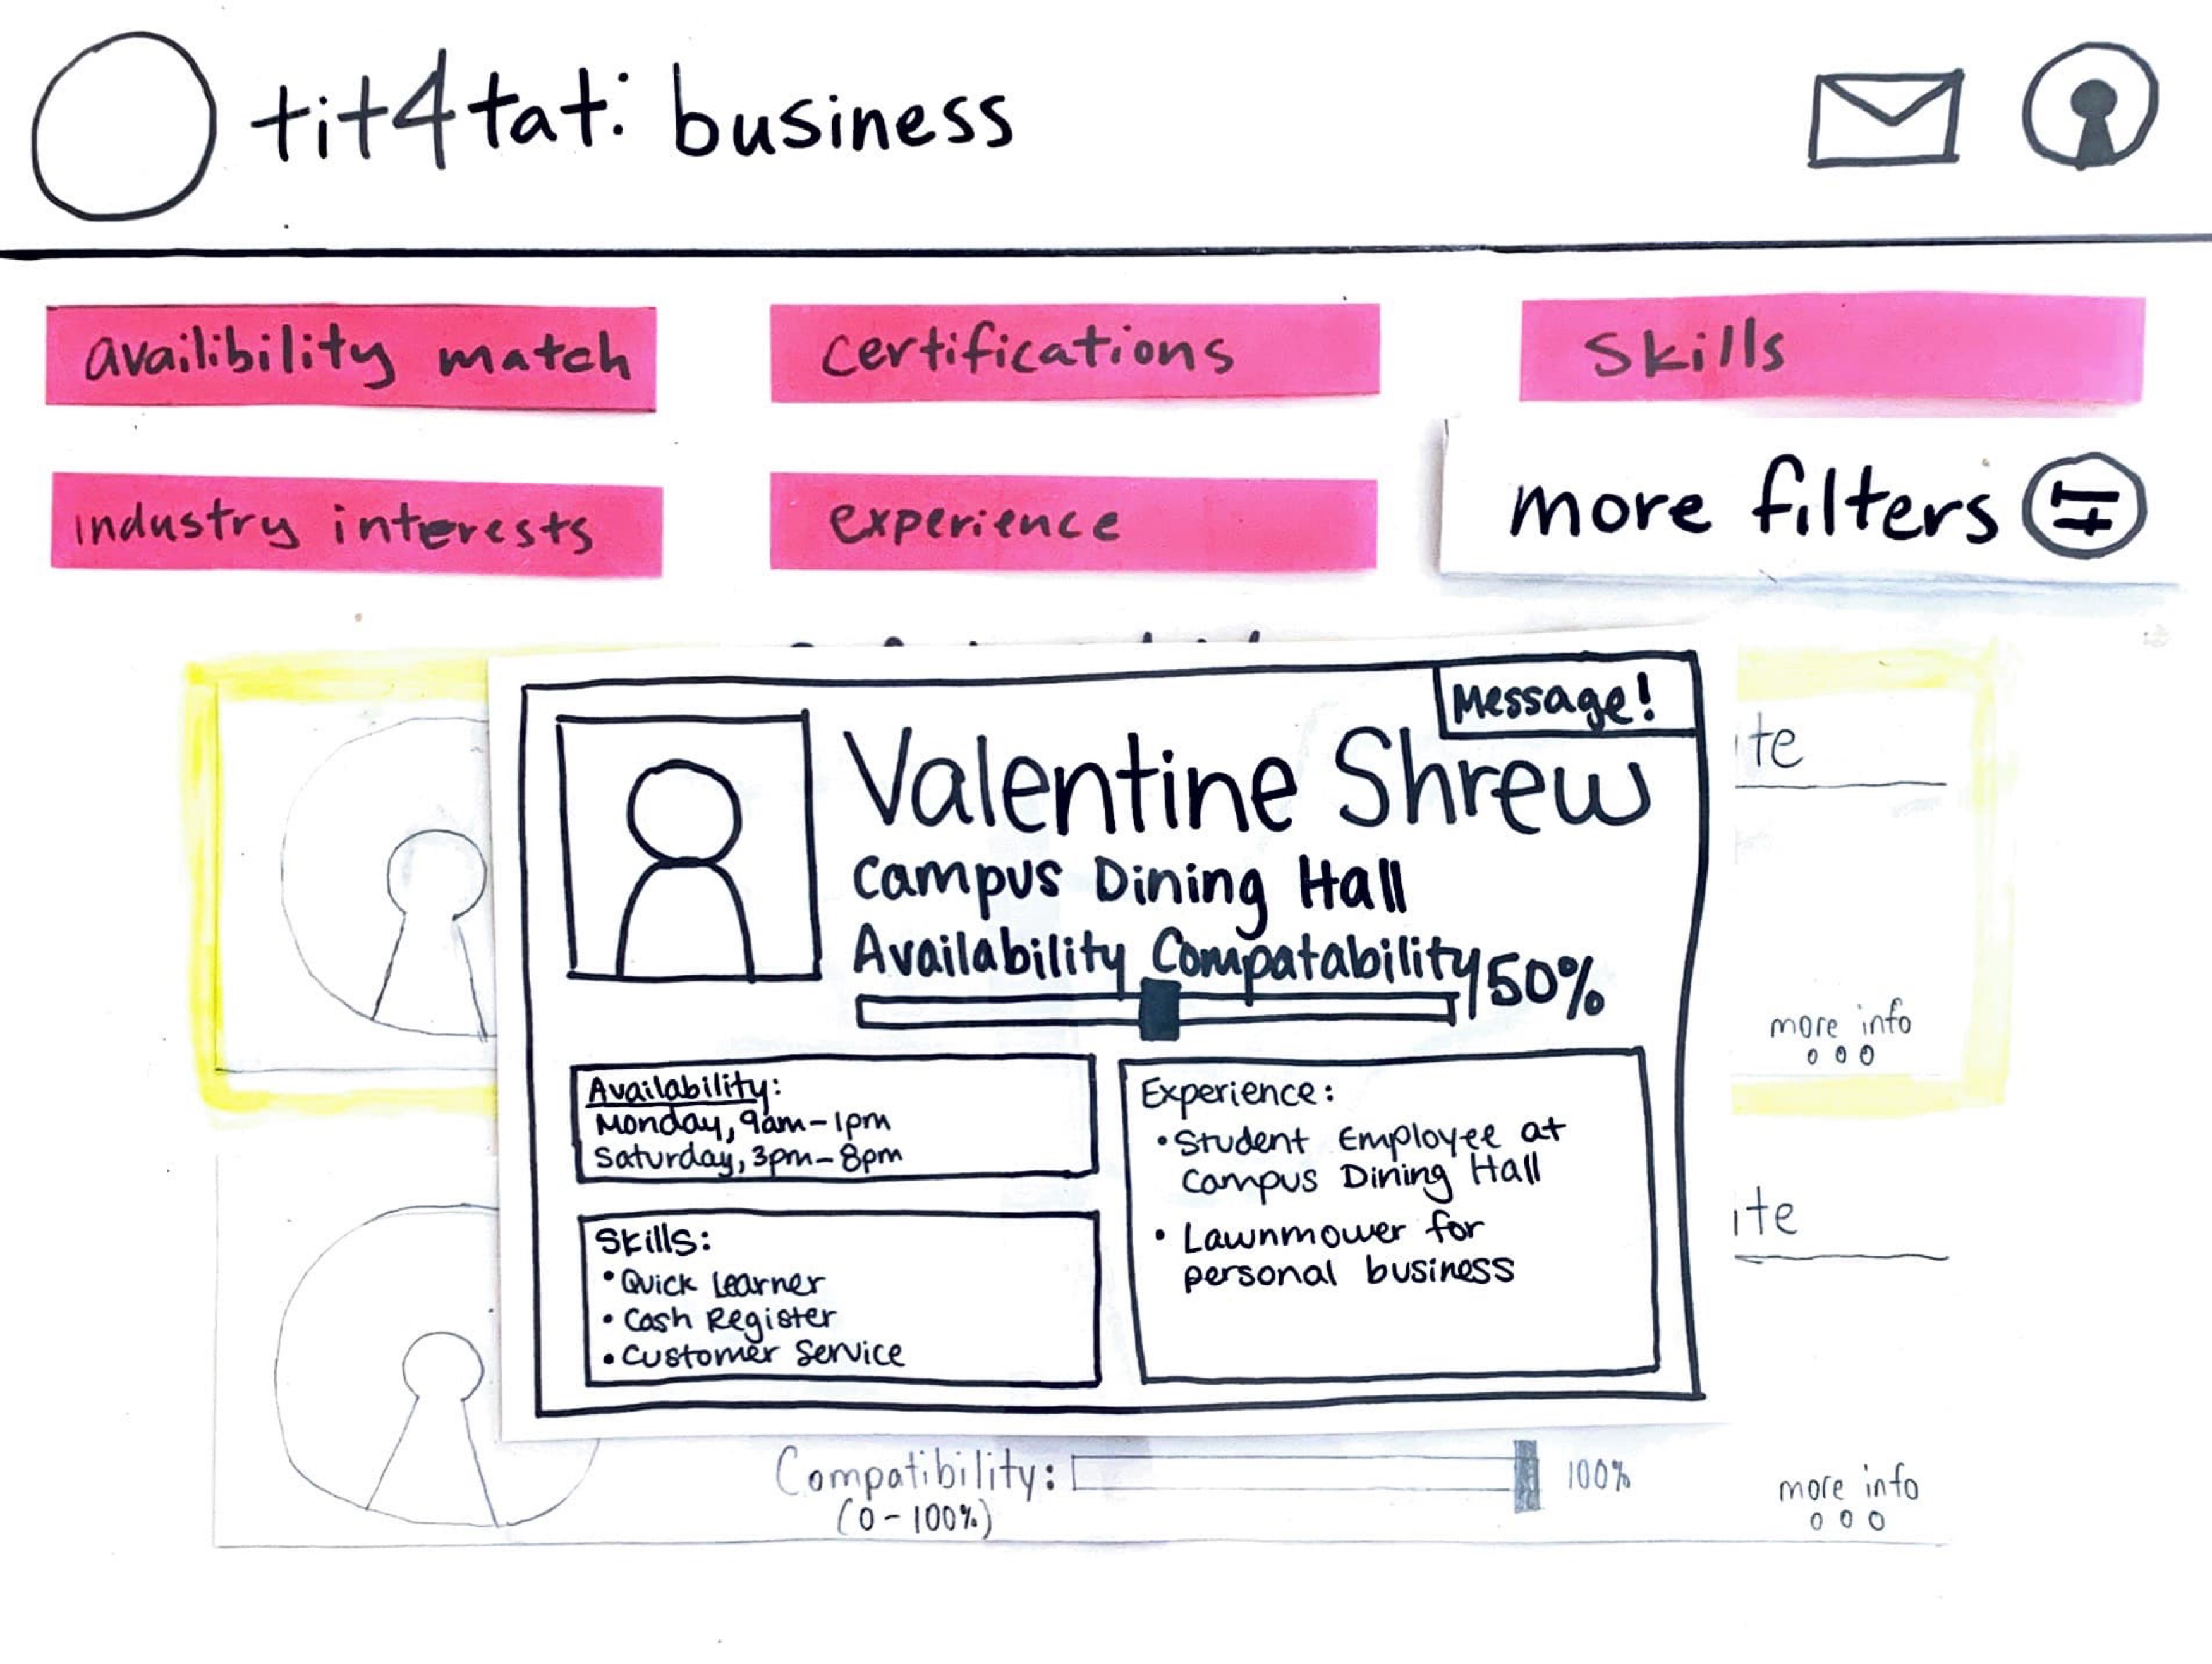 tit4tat: business
availibility match
certifications
skills
industry interests
experience
more filters
Message!
Valentine Shrew
Campus Dining Hall
Availability Compatability 50%
Availability:
Monday, 9am-1pm
Saturday, 3pm-8pm
Skills:
• Quick Learner
• Cash Register
• Customer Service
Experience:
• Student Employee at
Campus Dining Hall
• Lawnmower for
personal business
ite
more info
ite
Compatibility: 100%
(0-100%)
more info